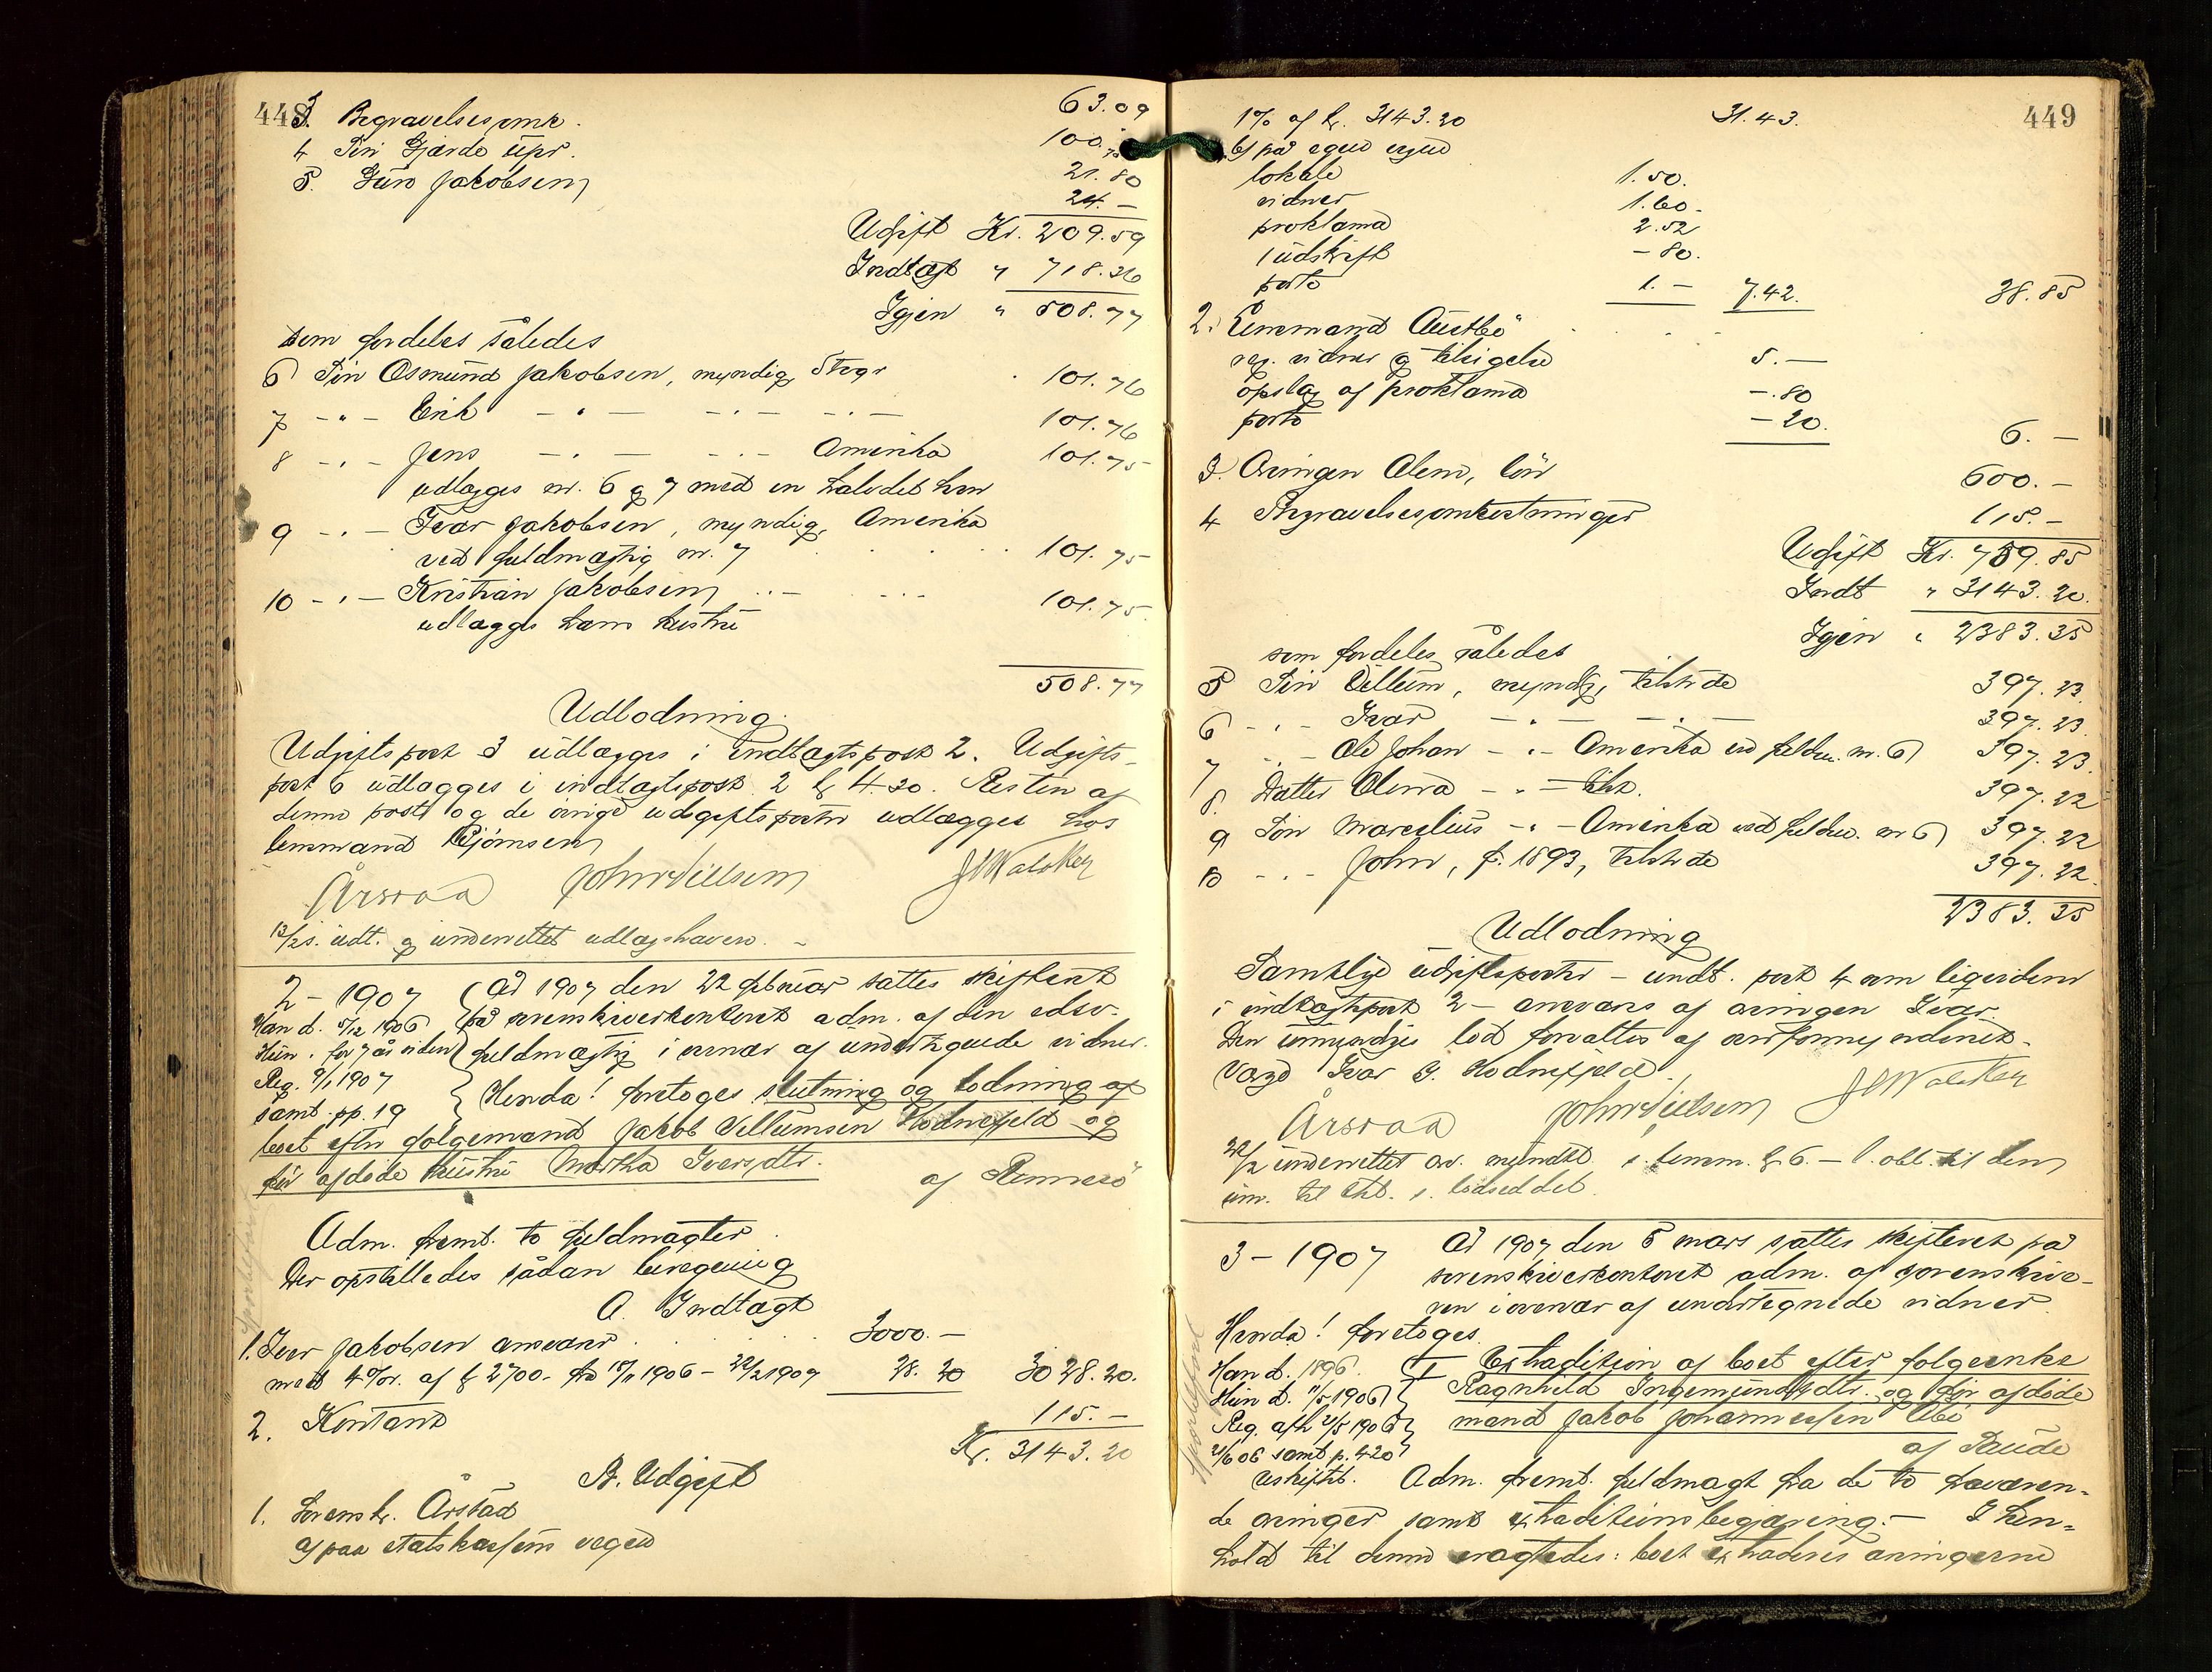 448
3. Begravelsesomk. 63.09
4 100.
5. Jakobsen 21.80
24.—
Udgift Kr. 209.59
Indtægt " 718.36
Igjen " 508.77
som fordeles således
6 Søn Osmund Jakobsen, myndig, 101.76
7 - " - Erik - " - - " - - " - 101.76
8 - " - Jens - " - - " - Amerika 101.75
udlægges nr. 6 og 7 med en halvdel hver
9 - " - Ivar Jakobsen, myndig, Amerika
ved fuldmægtig nr. 7 101.75
10 - " - Kristian Jakobsen 101.75
udlægges hans hustru
508.77
Udlodning.
Udgiftspost 3 udlægges i indtægtspost 2. Udgifts-
post 6 udlægges i indtægtspost 2 kr 4.20. Resten af
denne post og de øvrige udgiftsposter udlægges hos
lensmand Bjørnsen
Årstad John Nilssen
13/2 s. udt. og underrettet udlægshaverne. –
2 – 1907 År 1907 den 22 februar sattes skifteret
Man d. 5/12 1906 på sorenskriverkontoret adm. af den edsv.
Hun. for 7 år siden fuldmægtig i overvær af undertegnede vidner.
Reg. 9/1 1907 Herda! foretoges slutning og lodning af
samt. pp. 19
boet efter følgemand Jakob Villumsen Hodnefjeld og
før afdøde hustru Martha Iversdtr.
af Rennesø
Adm. freml. to fuldmagter.
Der opstilledes sådan beregning
A. Indtægt
1. Iver Jakobsen ansvarer 3000.—
med 4% r. af kr 2700.- fra 15/11 1906 – 22/2 1907 28.20 3028.20.
2. Kontant 115.—
Kr. 3143.20
B. Udgift
1. Sorenskr. Årstad
a) paa statskassens vegne
449
1% af kr. 3143.20 31.43.
b) på egne vegne
lokale 1.50.
vidner 1.60.
proklama 2.52
1 udskrift – 80.
porto 1.— 7.42. 38.85
2. Lensmand Austbø
reg. vidner og tilsigelse 5.—
opslag af proklama –.80
porto – 20. 6.—
3. Arvingen Olena, løn 600.—
4 Begravelsesomkostninger 115.—
Udgift Kr. 759.85
Indt " 3143.20.
Igjen " 2383.35
som fordeles således
5 Søn Villum, myndig, tilstede 397.23
6 - " - Ivar - " - - " - 397.23
7 - " - Ole Johan - " - Amerika ved fuldm. nr. 6) 397.23
8. Datter Olena - " - tilst. 397.22
9 Søn Marselius - " - Amerika ved fuldm. nr 6) 397.22
10 - " - John, f. 1893, tilstede 397.22
2383.35
Udlodning
Samtlige udgiftsposter – undt. post 4 som lignedes
i indtægtspost 2 – ansvares af arvingen Ivar.
Den umyndiges lod forvaltes af overformynderiet.
Værge Ivar J. Hodnefjeld.
Årstad John Nilssen
22/2 underrettet ov. myndt s. lensm. kr 6.— 1. obl. til den
um. til tilst. s. lodseddel.
3 – 1907 År 1907 den 5 mars sattes skifteret på
sorenskriverkontoret adm. af sorenskrive-
ren i overvær af undertegnede vidner
Herda! foretoges.
Man d. 1896. I Extradition af boet efter følgeenke
Hun d. 11/5 1906 Ragnhild Ingemundsdtr. og før afdøde
Reg. afh 21/5 1906 mand Jakob Johannessen
21/6 06 samt p. 420 af
uskiftet. Adm. freml. fuldmagt fra de to fraværen-
de arvinger samt extraditionsbegjæring. – I hen-
hold til denne eragtedes: boet extraderes arvingerne